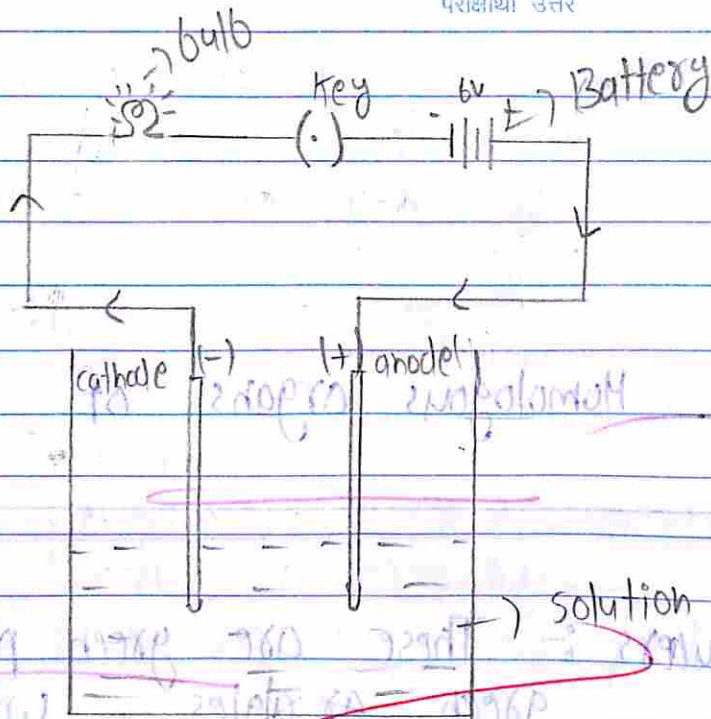 परीक्षार्थी उत्तर
bulb
Key
6v
Battery
cathode (-)
(+) anode
solution